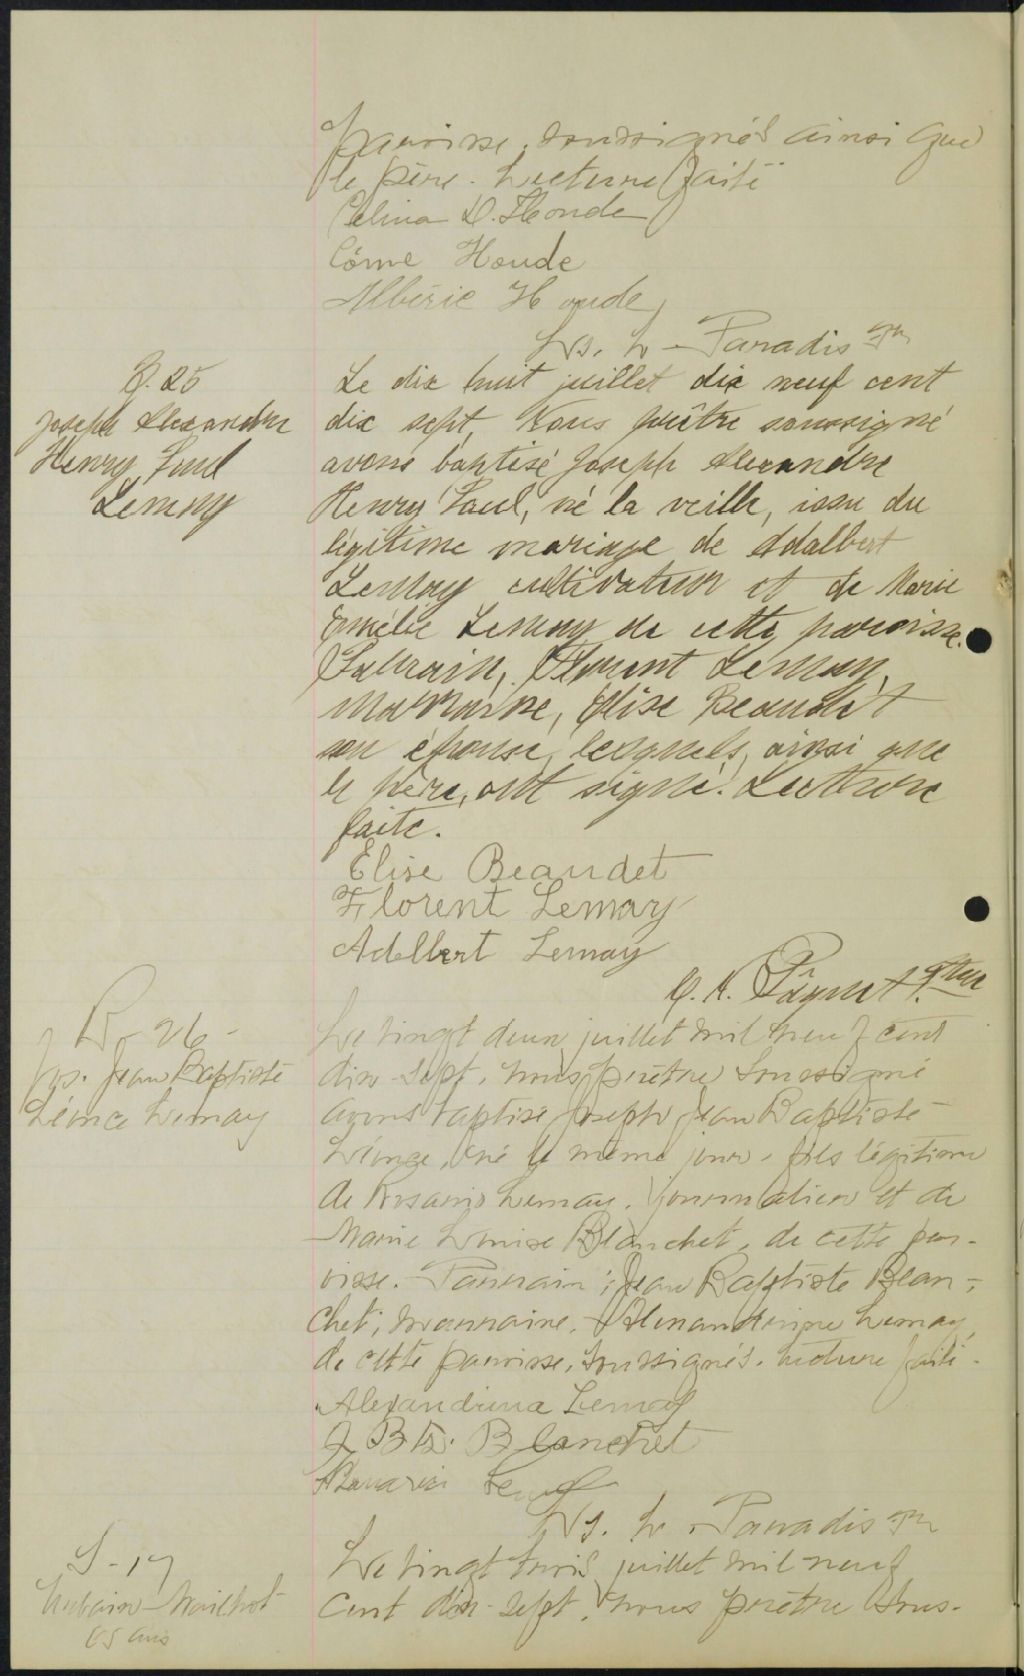 paroisse, soussignés ainsi que
le père. Lecture faite
Célina D. Houde
Côme Houde
Albéric Houde
Ls. L. Paradis Ptre
B. 25
Joseph Alexandre
Henry Paul
Lemay
Le dix huit juillet dix neuf cent
dix sept, Nous prêtre soussigné
avons baptisé Joseph Alexandre
Henry Paul, né la veille, issu du
légitime mariage de Adalbert
Lemay cultivateur et de Marie
Emélie Lemay de cette paroisse.
Parrain, Florent Lemay,
Marraine, Elise Beaudet
son épouse, lesquels, ainsi que
le père, ont signé. Lecture
faite.
Elise Beaudet
Florent Lemay
Adelbert Lemay
Ptre
B. 26 -
Jos. Jean Baptiste
Léonce Lemay
Le vingt deux juillet mil neuf cent
dix-sept, nous prêtre soussigné
avons baptisé Joseph Jean Baptiste
Léonce, né le même jour, fils légitime
de Rosario Lemay, journalier et de
Marie Louise Blanchet, de cette par-
oisse. Parrain; Jean Baptiste Blan-
chet; marraine, Alexandrine Lemay,
de cette paroisse, soussignés. Lecture faite.
Alexandrina Lemay
J Bte. Blanchet
Rosario Lemay
Ls. L. Paradis Ptre
S-17
Urbain Mailhot
Le vingt trois juillet mil neuf
cent dix-sept, nous prêtre sous-